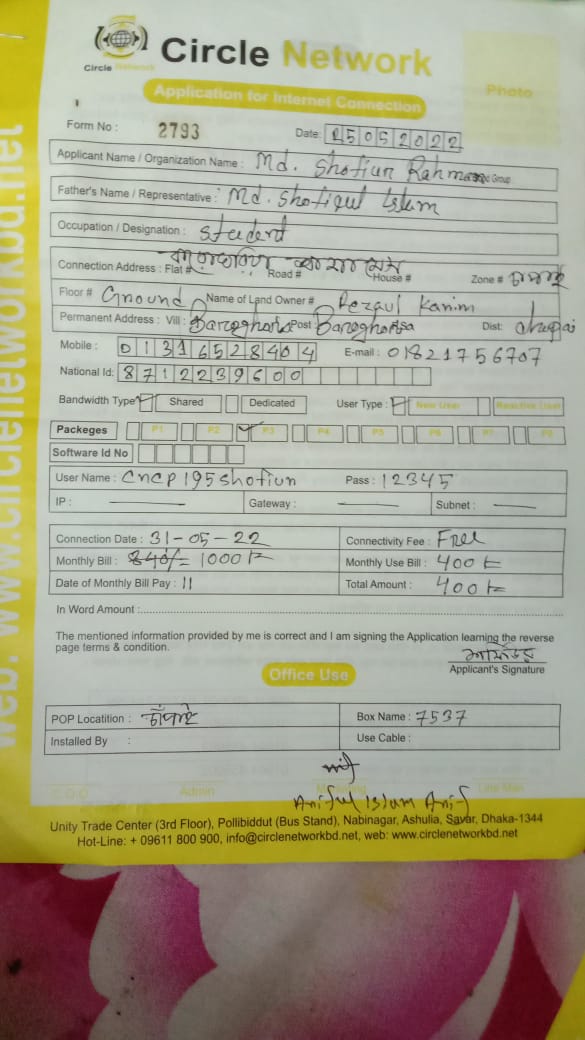 Circle Network
Circle Network
Application for Internet Connection
Photo
Form No : 2793
Date: 25052022
Applicant Name / Organization Name : Md. Shofiun Rahman
Father's Name / Representative : Md. Shofiqul Islam
Occupation / Designation : Student
Connection Address : Flat # Road # House # Zone #
Floor # Ground Name of Land Owner # Rezaul Karim
Permanent Address : Vill : Baroghoria Post Baroghoria Dist: Chapai
Mobile : 01316528404 E-mail : 01821756707
National Id: 8712239600
Bandwidth Type Shared Dedicated User Type : New User Reactive User
Packeges P1 P2 P3 P4 P5 P6 P7 P8
Software Id No
User Name : cncp195shofiun Pass : 12345
IP : Gateway : Subnet :
Connection Date : 31-05-22 Connectivity Fee : Free
Monthly Bill : 840/= 1000 tk Monthly Use Bill : 400 tk
Date of Monthly Bill Pay : 11 Total Amount : 400 tk
In Word Amount :
The mentioned information provided by me is correct and I am signing the Application learning the reverse
page terms & condition.
Applicant's Signature
Office Use
POP Locatition : Box Name : 7537
Installed By : Use Cable :
C.O.O Admin Marketing Line Man
Ariful Islam Arif
Unity Trade Center (3rd Floor), Pollibiddut (Bus Stand), Nabinagar, Ashulia, Savar, Dhaka-1344
Hot-Line: + 09611 800 900, info@circlenetworkbd.net, web: www.circlenetworkbd.net
web: www.circlenetworkbd.net